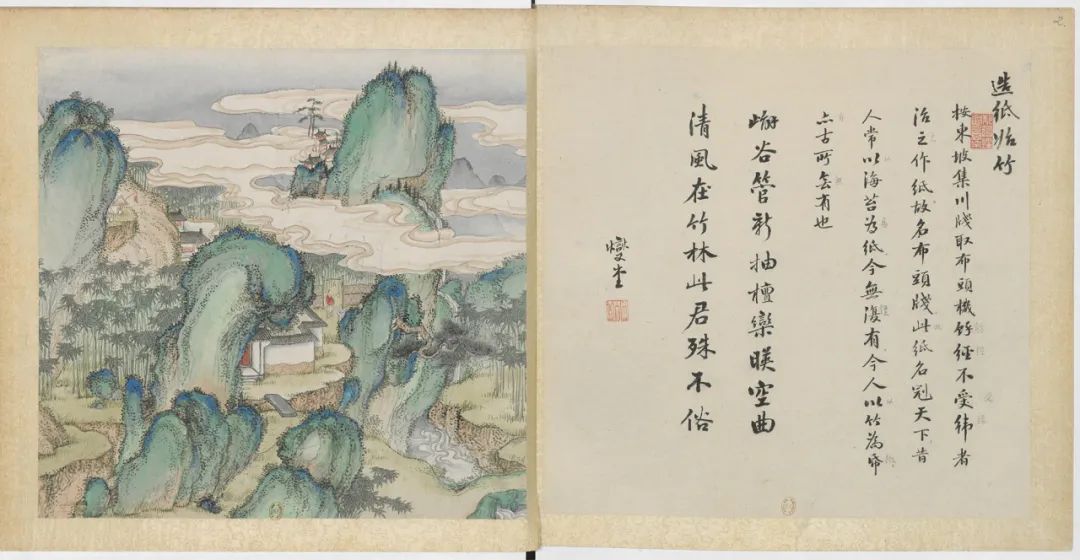 2.
造紙 竹
按東坡集川牋取布頭機餘經不受緯者
治之作紙故名布頭牋此紙名冠天下昔
人常以海苔為紙今無復有今人以竹為帋
亦古所無有也
嶰谷管新抽檀欒暎空曲
清風在竹林此君殊不俗
燮堂